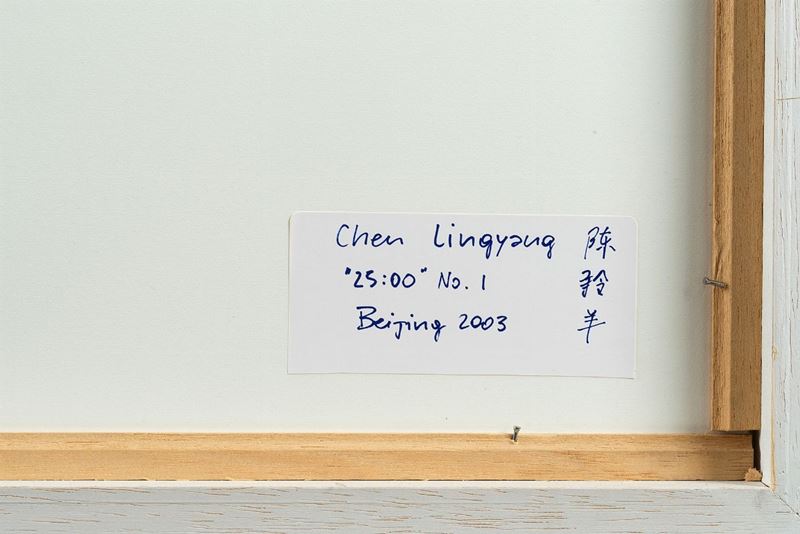 Chen Lingyang 陈
"25:00" No. 1 羚
Beijing 2003 羊